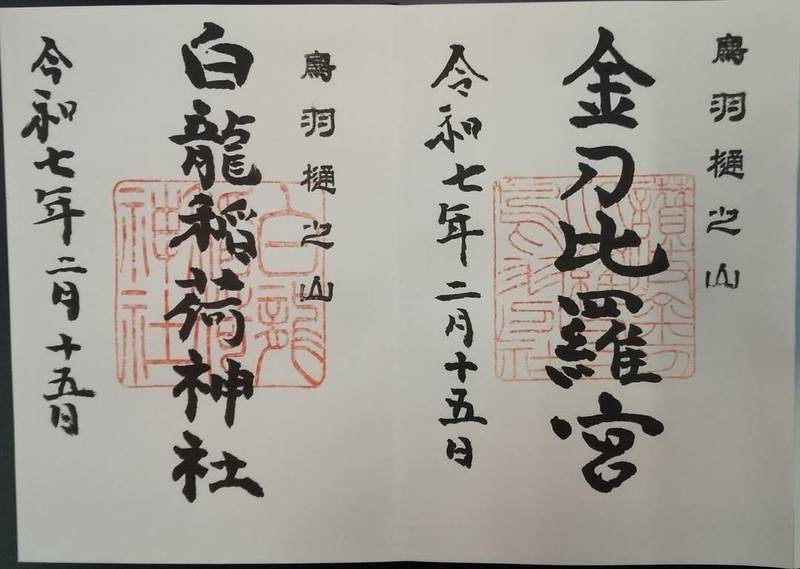 鳥羽樋之山
金刀比羅宮
令和七年二月十五日
鳥羽樋之山
白龍稲荷神社
白龍稲荷神社
令和七年二月十五日